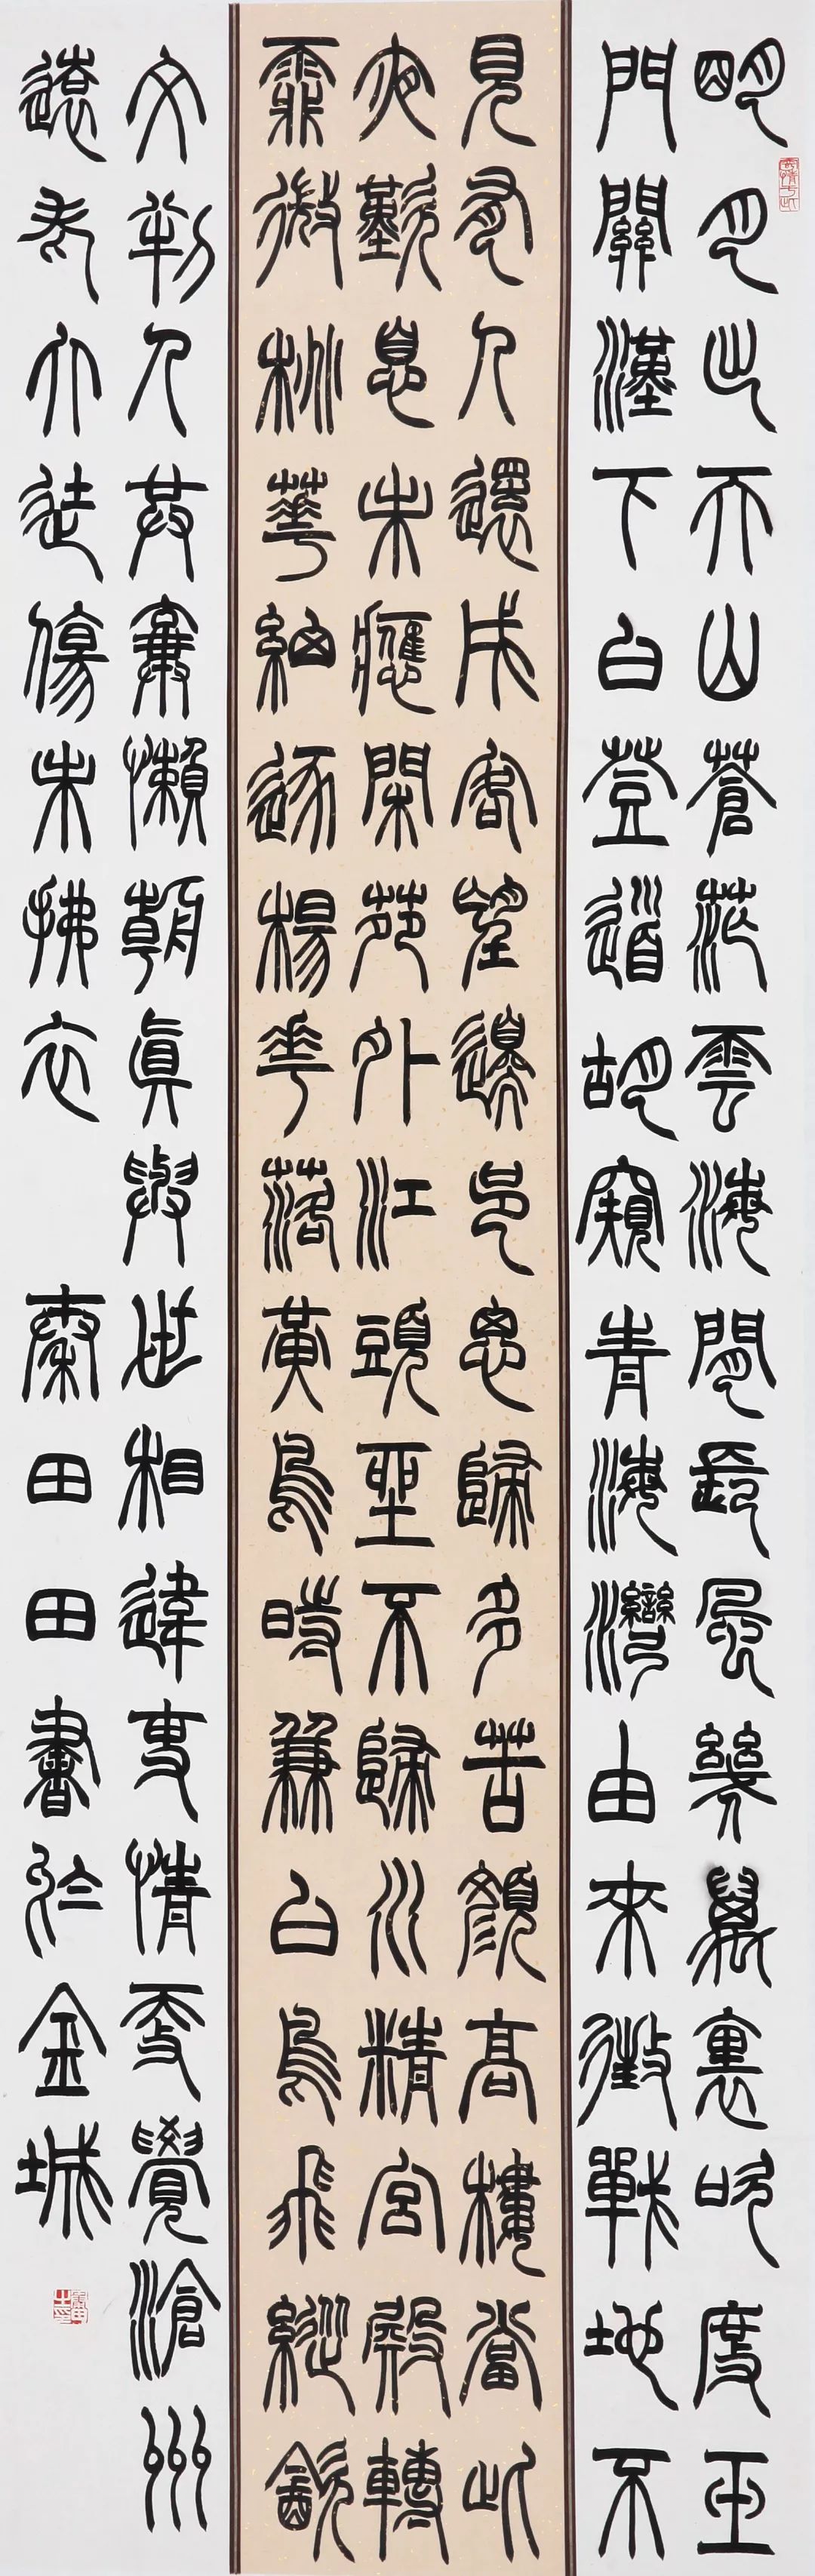 明月出天山蒼茫雲海間長風幾萬裏吹度玉
門關漢下白登道胡窺青海灣由來徵戰地不
見有人還戍客望邊邑思歸多苦顏高樓當此
夜歎息未應閑苑外江頭坐不歸水精宮殿轉
霏微桃華細逐楊花落黃鳥時兼白鳥飛縱飲
久判人共棄懶朝真與世相違吏情更覺滄州
遠老大徒傷未拂衣
田田書於金城